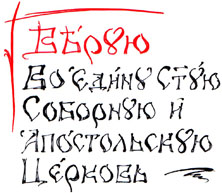 Вѣрую
Во Єди́ну Ст҃ую
Собо́рную и҆
А҆посто́льскую
Це́рковь